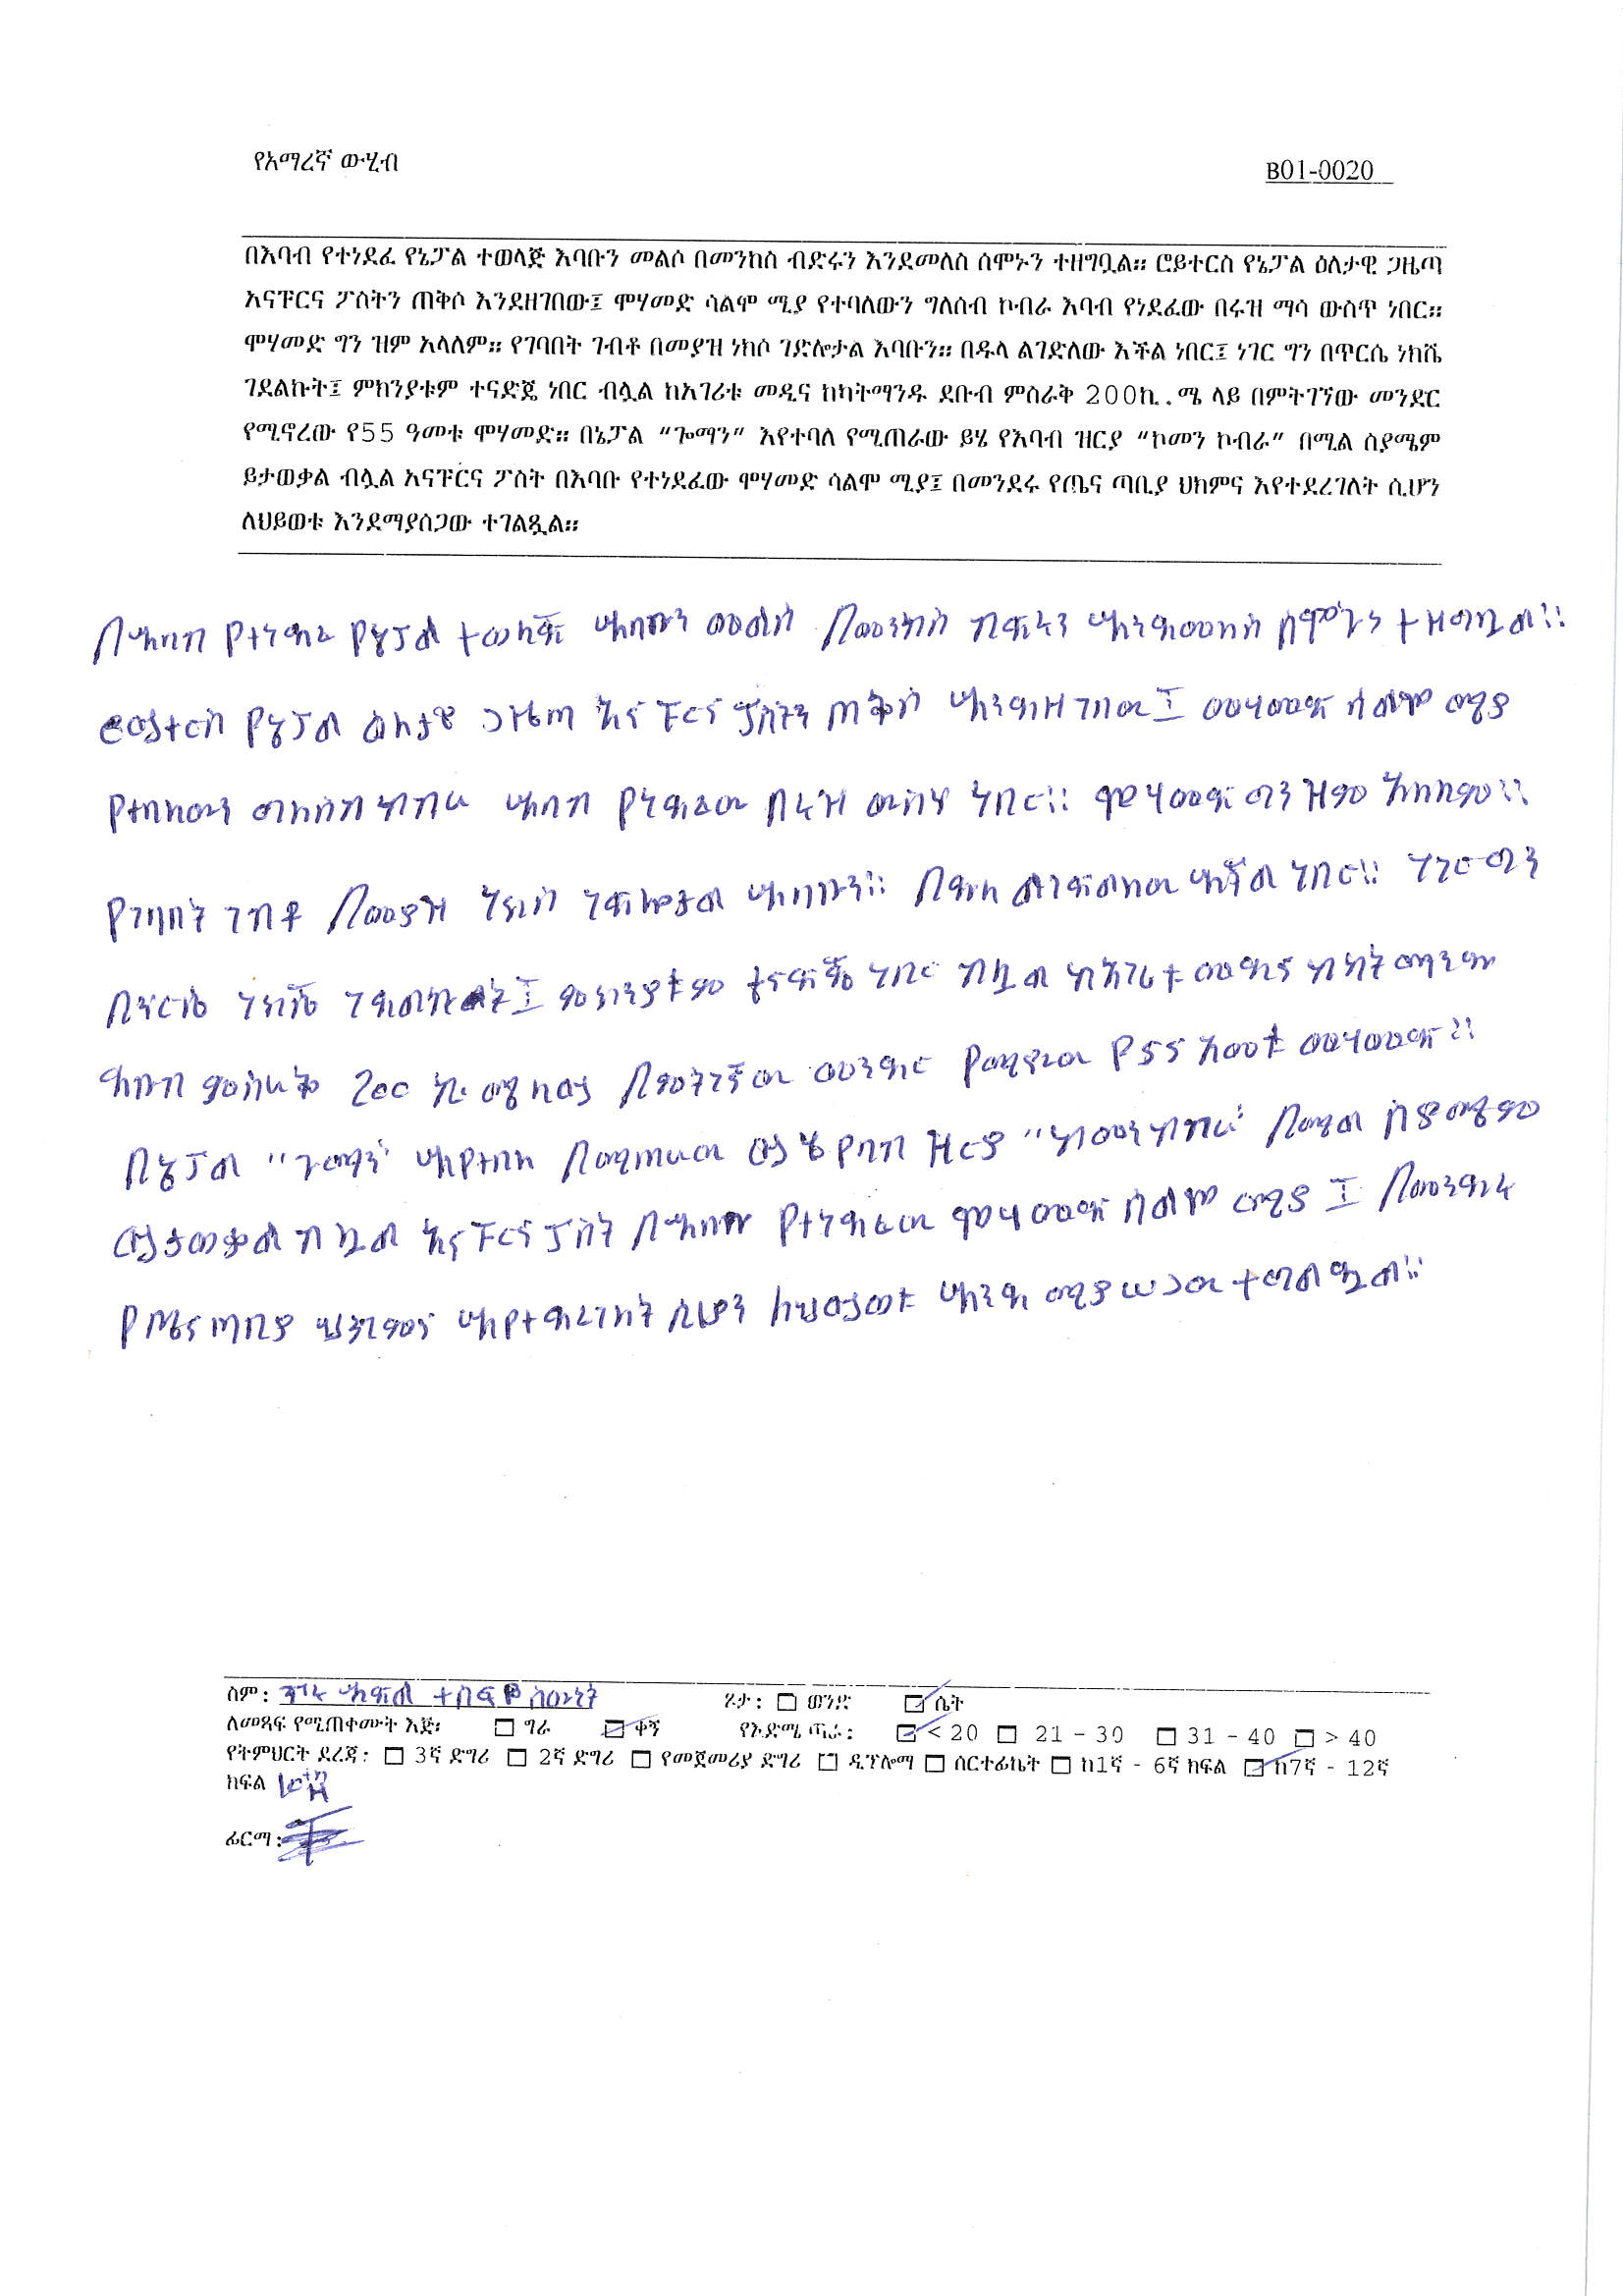 የአማረኛ ውሂብ
B01-0020
በእባብ የተነደፈ የኔፓል ተወላጅ እባቡን መልሶ በመንከስ ብድሩን እንደመለስ ሰሞኑን ተዘግቧል። ሮይተርስ የኔፓል ዕለታዊ ጋዜጣ
አናፑርና ፖስትን ጠቅሶ እንደዘገበው፤ ሞሃመድ ሳልሞ ሚያ የተባለውን ግለሰብ ኮብራ እባብ የነደፈው በሩዝ ማሳ ውስጥ ነበር።
ሞሃመድ ግን ዝም አላለም። የገባበት ገብቶ በመያዝ ነክሶ ገድሎታል እባቡን። በዱላ ልገድለው እችል ነበር፤ ነገር ግን በጥርሴ ነክሼ
ገደልኩት፤ ምክንያቱም ተናድጄ ነበር ብሏል ከአገሪቱ መዲና ከካትማንዱ ደቡብ ምስራቅ 200ኪ.ሜ ላይ በምትገኘው መንደር
የሚኖረው የ55 ዓመቱ ሞሃመድ። በኔፓል “ጐማን” እየተባለ የሚጠራው ይሄ የእባብ ዝርያ “ኮመን ኮብራ” በሚል ስያሜም
ይታወቃል ብሏል አናፑርና ፖስት በእባቡ የተነደፈው ሞሃመድ ሳልሞ ሚያ፤ በመንደሩ የጤና ጣቢያ ህክምና እየተደረገለት ሲሆን
ለህይወቱ እንደማያሰጋው ተገልጿል።
በእባብ የተነደፈ የኔፓል ተወላጅ እባቡን መልሶ በመንከስ ብድሩን እንደመለስ ሰሞኑን ተዘግቧል።
ሮይተርስ የኔፓል ዕለታዊ ጋዜጣ አናፑርና ፖስትን ጠቅሶ እንደዘገበው፤ መሃመድ ሳልሞ ሚያ
የተባለውን ግለሰብ ኮብራ እባብ የነደፈው በሩዝ ውስጥ ነበር። ሞሃመድ ግን ዝም አላለም።
የገባበት ገብቶ በመያዝ ነክሶ ገድሎታል እባቡን። በዱላ ልገድለው እችል ነበር። ነገር ግን
በጥርሴ ነክሼ ገደልኩት፤ ምክንያቱም ተናድጄ ነበር ብሏል ከአገሪቱ መዲና ከካትማንዱ
ደቡብ ምስራቅ 200 ኪ.ሜ ላይ በምትገኘው መንደር የሚኖረው የ55 አመቱ መሃመድ።
በኔፓል "ጐማን" እየተባለ በሚጠራው ይሄ የባብ ዝርያ "ኮመን ኮብራ" በሚል ስያሜም
ይታወቃል ብሏል አናፑርና ፖስት በእባቡ የተነደፈው ሞሃመድ ሳልሞ ሚያ፤ በመንደሩ
የጤና ጣቢያ ህክምና እየተደረገለት ሲሆን ለህይወቱ እንደ ማያሠጋው ተገልጿል።
ስም: ተስፋዬ ፆታ: ወንድ ሴት
ለመጻፍ የሚጠቀሙት እጅ: ግራ ቀኝ የእድሜ ጣራ: < 20 21 - 30 31 - 40 > 40
የትምህርት ደረጃ: 3ኛ ድግሪ 2ኛ ድግሪ የመጀመሪያ ድግሪ ዲፕሎማ ሰርተፊኬት ከ1ኛ - 6ኛ ክፍል ከ7ኛ - 12ኛ
ክፍል
ፊርማ: